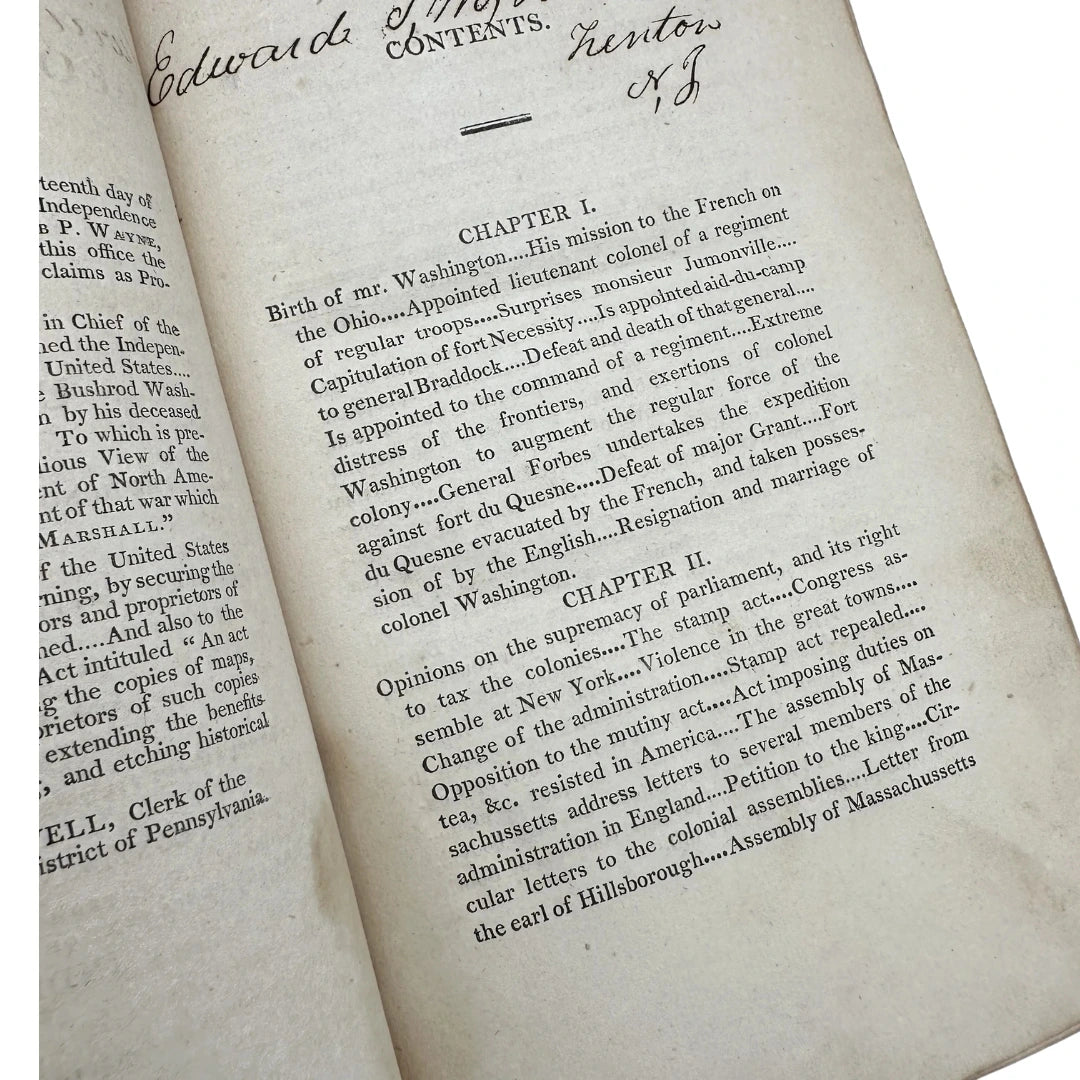 teenth day of
Independence
B P. WAYNE,
this office the
claims as Pro-
in Chief of the
ned the Indepen-
United States....
e Bushrod Wash-
n by his deceased
To which is pre-
ious View of the
ent of North Ame-
nt of that war which
MARSHALL."
f the United States
rning, by securing the
ors and proprietors of
ned....And also to the
Act intituled "An act
g the copies of maps,
prietors of such copies
extending the benefits
, and etching historical
VELL, Clerk of the
istrict of Pennsylvania.
Edward
CONTENTS.
Trenton
N, J
CHAPTER I.
Birth of mr. Washington....His mission to the French on
the Ohio....Appointed lieutenant colonel of a regiment
of regular troops....Surprises monsieur Jumonville....
Capitulation of fort Necessity....Is appointed aid-du-camp
to general Braddock....Defeat and death of that general....
Is appointed to the command of a regiment....Extreme
distress of the frontiers, and exertions of colonel
Washington to augment the regular force of the
colony....General Forbes undertakes the expedition
against fort du Quesne....Defeat of major Grant....Fort
du Quesne evacuated by the French, and taken posses-
sion of by the English....Resignation and marriage of
colonel Washington.
CHAPTER II.
Opinions on the supremacy of parliament, and its right
to tax the colonies....The stamp act....Congress as-
semble at New York....Violence in the great towns....
Change of the administration....Stamp act repealed....
Opposition to the mutiny act....Act imposing duties on
tea, &c. resisted in America....The assembly of Mas-
sachussetts address letters to several members of the
administration in England....Petition to the king....Cir-
cular letters to the colonial assemblies....Letter from
the earl of Hillsborough....Assembly of Massachussetts